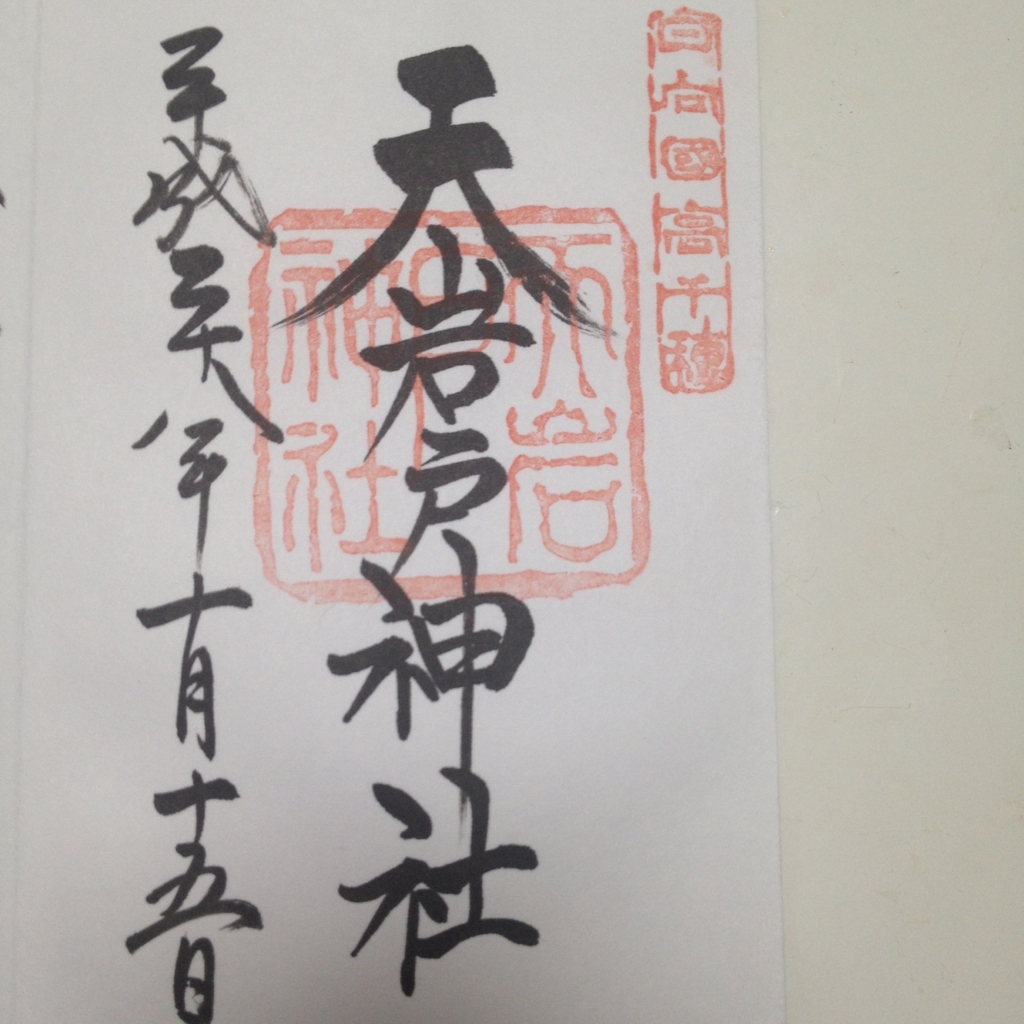 日向國高千穂
天岩戸神社
天岩戸神社
平成二十八年十月十五日